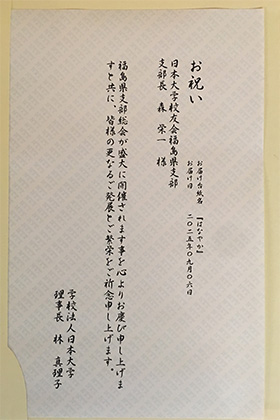 お祝い
お届け台紙名 『はなやか』
お届け日 二〇二五年〇九月〇六日
日本大学校友会福島県支部
支部長 森 栄一 様
福島県支部総会が盛大に開催されます事を心よりお慶び申し上げま
すと共に、皆様の更なるご発展とご繁栄をご祈念申し上げます。
学校法人日本大学
理事長 林 真理子